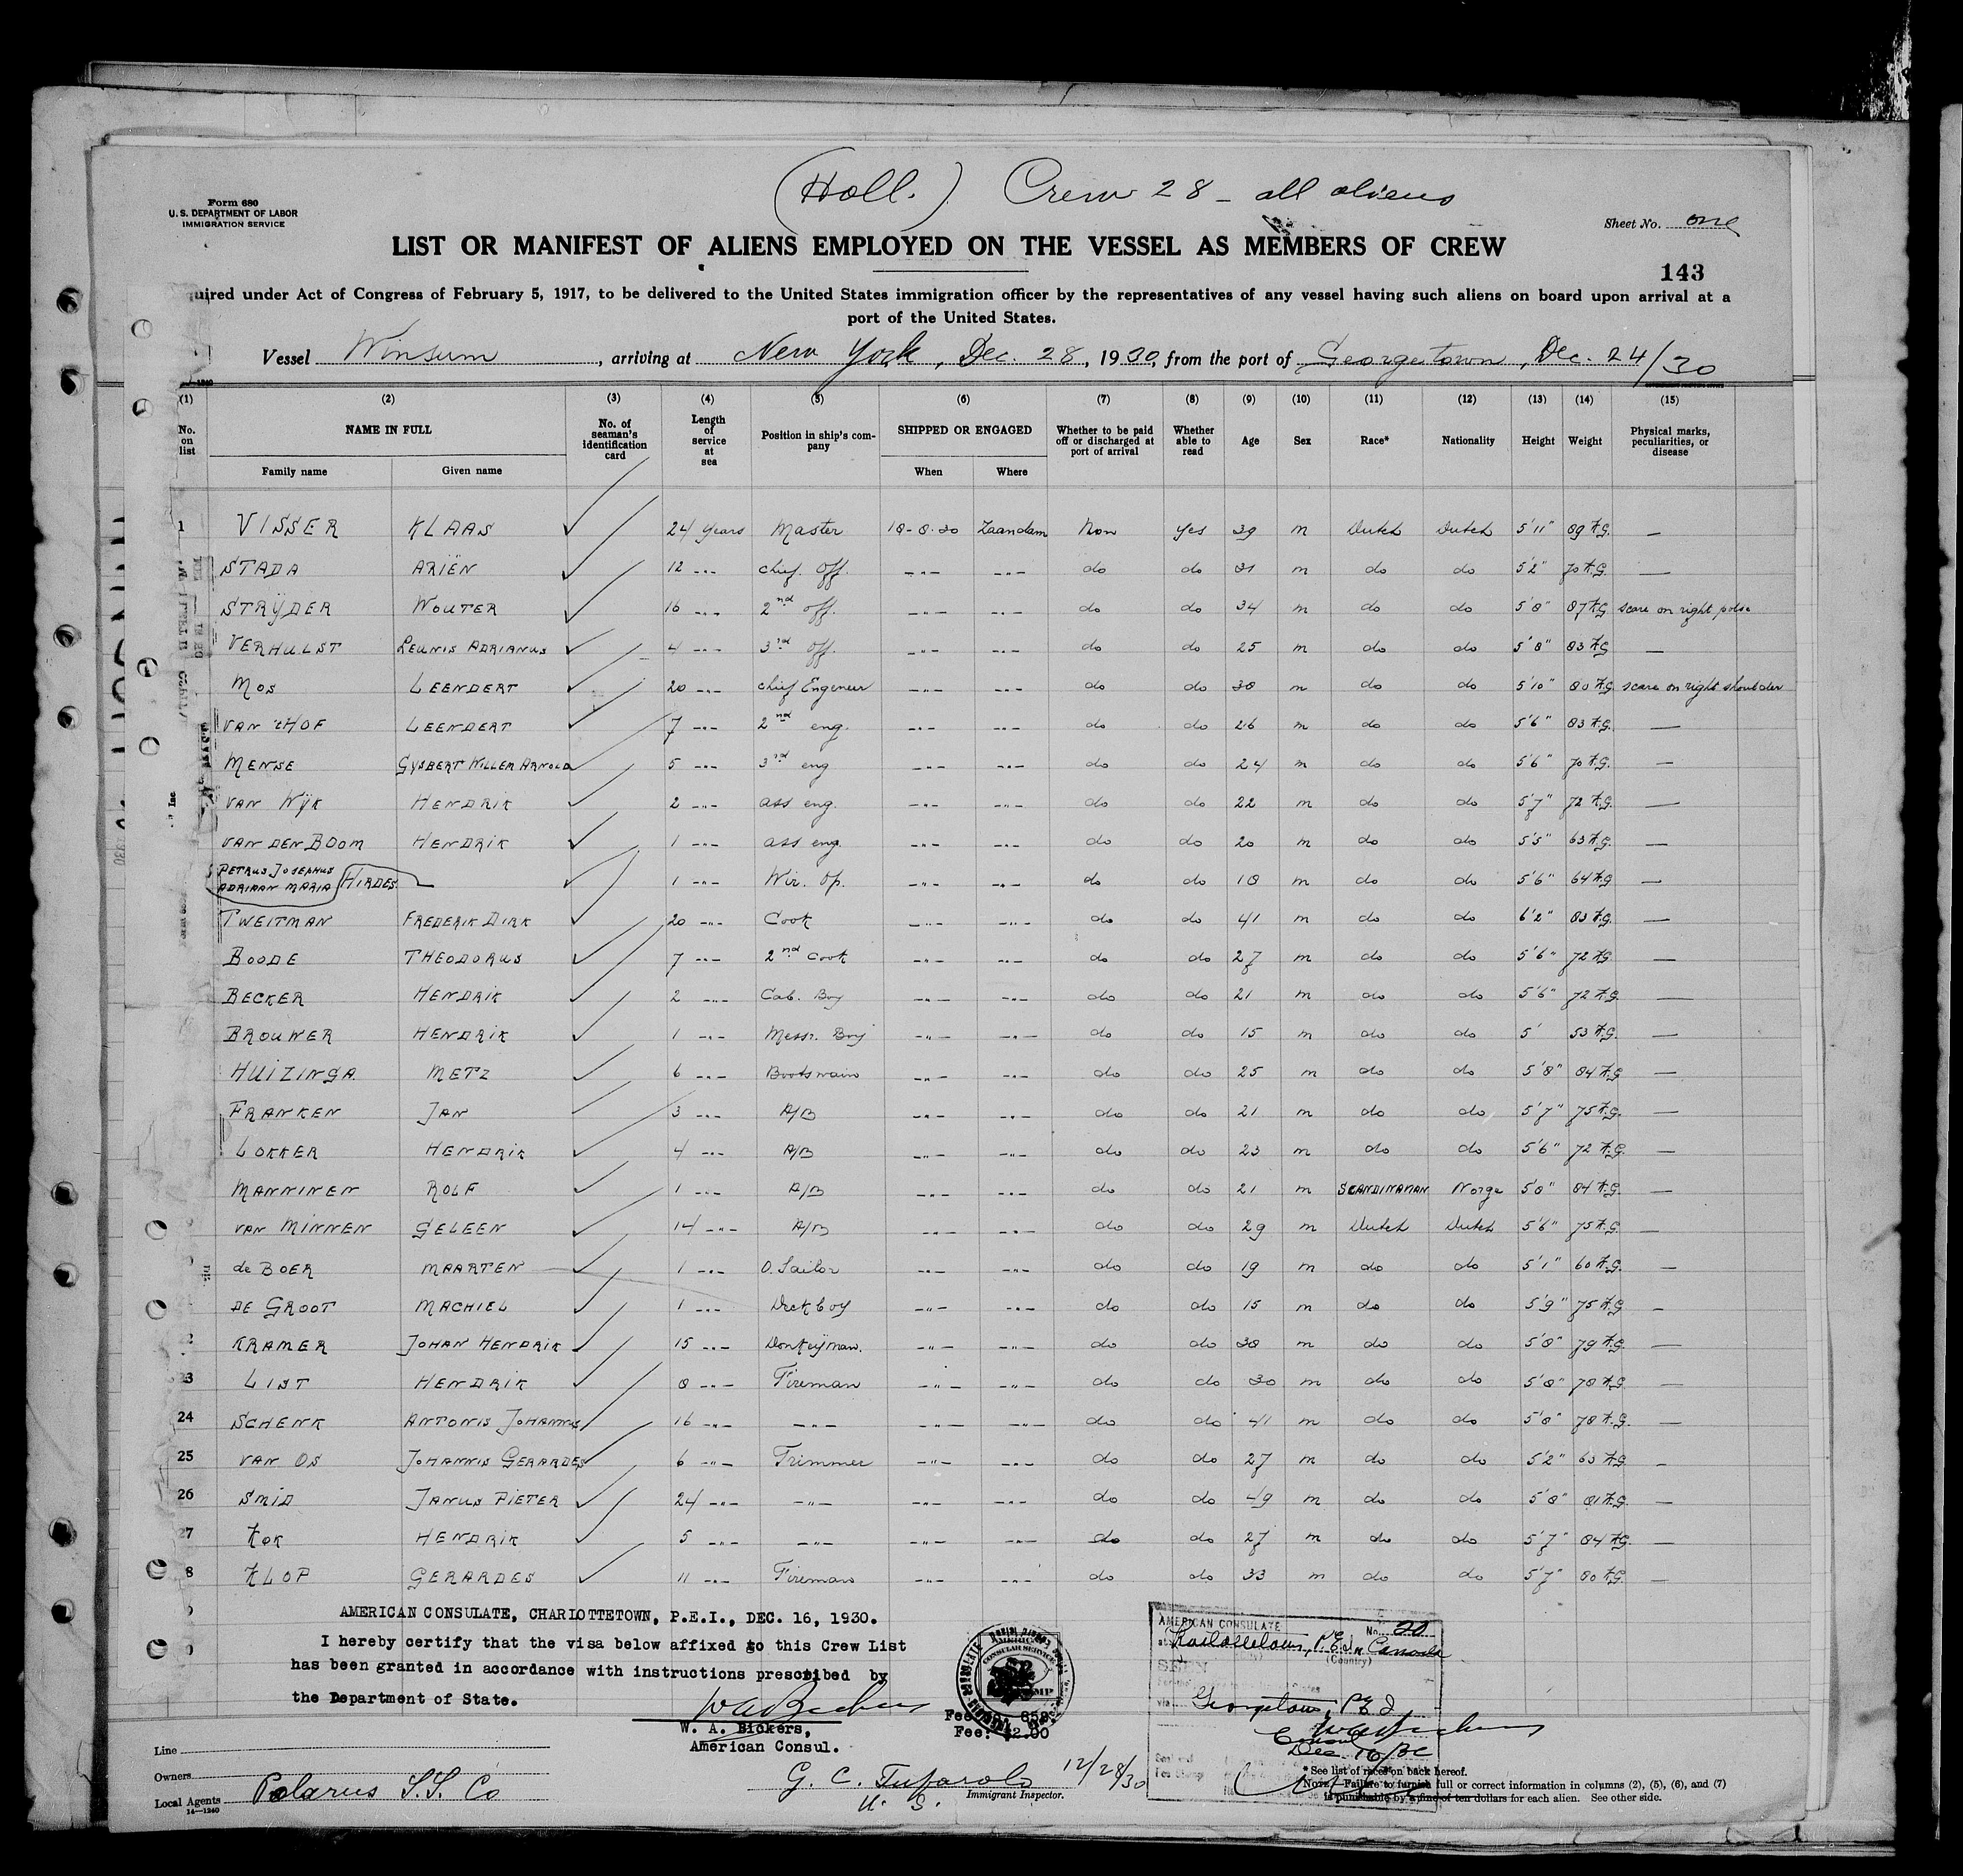 (Holl.) Crew 28 - all aliens
Form 680
U. S. DEPARTMENT OF LABOR
IMMIGRATION SERVICE
Sheet No. one
LIST OR MANIFEST OF ALIENS EMPLOYED ON THE VESSEL AS MEMBERS OF CREW
143
uired under Act of Congress of February 5, 1917, to be delivered to the United States immigration officer by the representatives of any vessel having such aliens on board upon arrival at a
port of the United States.
Vessel Winsum, arriving at New York, Dec. 28, 1930, from the port of Georgetown, Dec. 24/30
(1) (2) (3) (4) (5) (6) (7) (8) (9) (10) (11) (12) (13) (14) (15)
No. on list NAME IN FULL No. of seaman's identification card Length of service at sea Position in ship's company SHIPPED OR ENGAGED Whether to be paid off or discharged at port of arrival Whether able to read Age Sex Race* Nationality Height Weight Physical marks, peculiarities, or disease
Family name Given name When Where
1 VISSER KLAAS ✓ 24 Years Master 18-8-30 Zaandam Non Yes 39 m Dutch Dutch 5'11" 89 KG. —
STADA ARIËN ✓ 12 -"- chief. off. -"- -"- do do 31 m do do 5'2" 70 KG. —
STRŸDER WOUTER ✓ 16 -"- 2nd off. -"- -"- do do 34 m do do 5'8" 87 KG scare on right polse
VERHULST LEUNIS ADRIANUS ✓ 4 -"- 3rd off. -"- -"- do do 25 m do do 5'8" 83 KG —
MOS LEENDERT ✓ 20 -"- chief Engeneer -"- -"- do do 38 m do do 5'10" 80 KG scare on right shoulder
VAN 'T HOF LEENDERT ✓ 7 -"- 2nd eng. -"- -"- do do 26 m do do 5'6" 83 KG. —
MENSE GYSBERT WILLEM ARNOLD 5 -"- 3rd eng -"- -"- do do 24 m do do 5'6" 70 KG. —
VAN WŸK HENDRIK ✓ 2 -"- ass eng. -"- -"- do do 22 m do do 5'7" 72 KG. —
VAN DEN BOOM HENDRIK ✓ 1 -"- ass eng. -"- -"- do do 20 m do do 5'5" 63 KG. —
PETRUS JOSEPHUS
ADRIAAN MARIA HIRDES ✓ 1 -"- Wir. Op. -"- -"- do do 18 m do do 5'6" 64 KG —
TWEITMAN FREDERIK DIRK ✓ 20 -"- Cook -"- -"- do do 41 m do do 6'2" 83 KG. —
BOODE THEODORUS ✓ 7 -"- 2nd Cook -"- -"- do do 27 m do do 5'6" 72 KG —
BECKER HENDRIK ✓ 2 -"- Cab. Boy -"- -"- do do 21 m do do 5'6" 72 KG. —
BROUWER HENDRIK ✓ 1 -"- Messr. Boy -"- -"- do do 15 m do do 5' 53 KG. —
HUIZINGA METZ ✓ 6 -"- Bootswain -"- -"- do do 25 m do do 5'8" 84 KG —
FRANKEN JAN ✓ 3 -"- A/B -"- -"- do do 21 m do do 5'7" 75 KG. —
LOKKER HENDRIK ✓ 4 -"- A/B -"- -"- do do 23 m do do 5'6" 72 KG. —
MANNINEN ROLF ✓ 1 -"- A/B -"- -"- do do 21 m SCANDINAVIAN Norge 5'8" 84 KG. —
VAN MINNEN GELEEN ✓ 14 -"- A/B -"- -"- do do 29 m Dutch Dutch 5'6" 75 KG. —
de BOER MAARTEN ✓ 1 -"- O. Sailor -"- -"- do do 19 m do do 5'1" 60 KG. —
DE GROOT MACHIEL ✓ 1 -"- Deckboy -"- -"- do do 15 m do do 5'9" 75 KG —
2 KRAMER JOHAN HENDRIK ✓ 15 -"- Donkeyman. -"- -"- do do 38 m do do 5'8" 79 KG. —
23 LIST HENDRIK ✓ 8 -"- Fireman -"- -"- do do 30 m do do 5'8" 78 KG. —
24 SCHENK ANTONIS JOHANNUS ✓ 16 -"- -"- -"- -"- do do 41 m do do 5'8" 78 KG. —
25 VAN OS JOHANNIS GERARDES ✓ 6 -"- Trimmer -"- -"- do do 27 m do do 5'2" 63 KG —
26 SMID JANUS PIETER ✓ 24 -"- -"- -"- -"- do do 49 m do do 5'8" 81 KG. —
27 KOK HENDRIK ✓ 5 -"- -"- -"- -"- do do 27 m do do 5'7" 84 KG. —
8 KLOP GERARDES ✓ 11 -"- Fireman -"- -"- do do 33 m do do 5'7" 80 KG. —
AMERICAN CONSULATE, CHARIOTTETOWN, P.E.I., DEC. 16, 1930.
I hereby certify that the visa below affixed to this Crew List
has been granted in accordance with instructions prescribed by
the Department of State.
W. A. Bickers,
American Consul.
Fee: $2.00
AMERICAN CONSULATE
No. 20
Charlottetown, P.E.I., Canada
(Country)
SEEN
via Georgetown, P E I
Consul
Dec. 16/30
Line
Owners
Local Agents Polarus S.S. Co
14—1240
G. C. Tufarolo 12/28/30
U. S. Immigrant Inspector.
* See list of races on back hereof.
NOTE.—Failure to furnish full or correct information in columns (2), (5), (6), and (7)
is punishable by a fine of ten dollars for each alien. See other side.